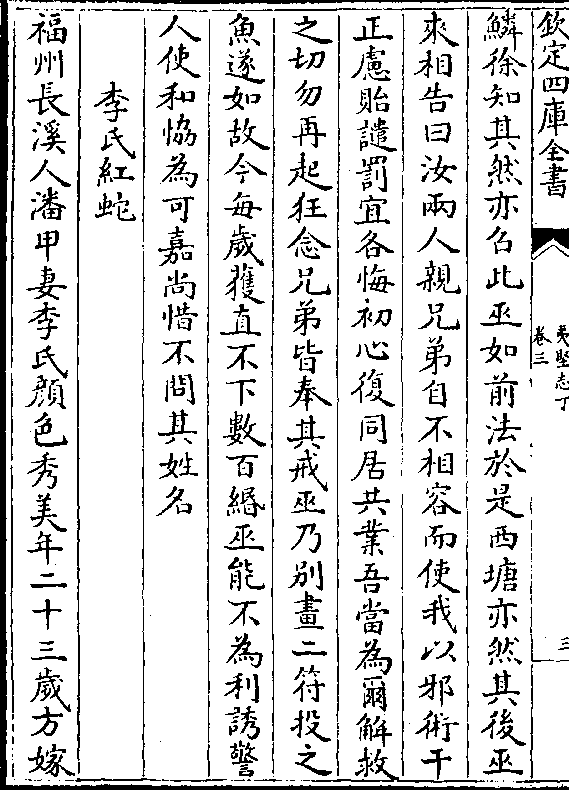 欽定四庫全書
夷堅志丁
卷三
三
鱗徐知其然亦召此巫如前法於是西塘亦然其後巫
來相告曰汝兩人親兄弟自不相容而使我以邪術干
正慮貽譴罰宜各悔初心復同居共業吾當為爾解救
之切勿再起狂念兄弟皆奉其戒巫乃別畫二符投之
魚遂如故今每歲獲直不下數百緡巫能不為利誘警
人使和恊為可嘉尚惜不問其姓名
李氏紅蛇
福州長溪人潘甲妻李氏顏色秀美年二十三歲方嫁